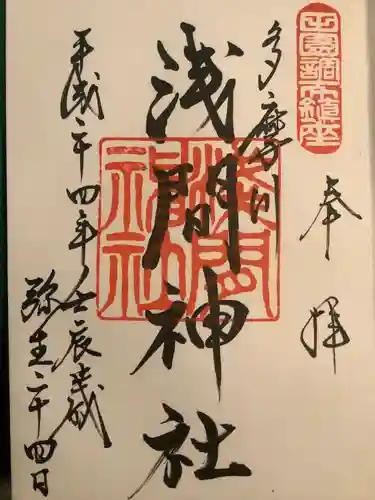 田園調布鎮座
奉拝
多摩川
浅間神社
平成二十四年壬辰歳
弥生二十四日
浅間神社